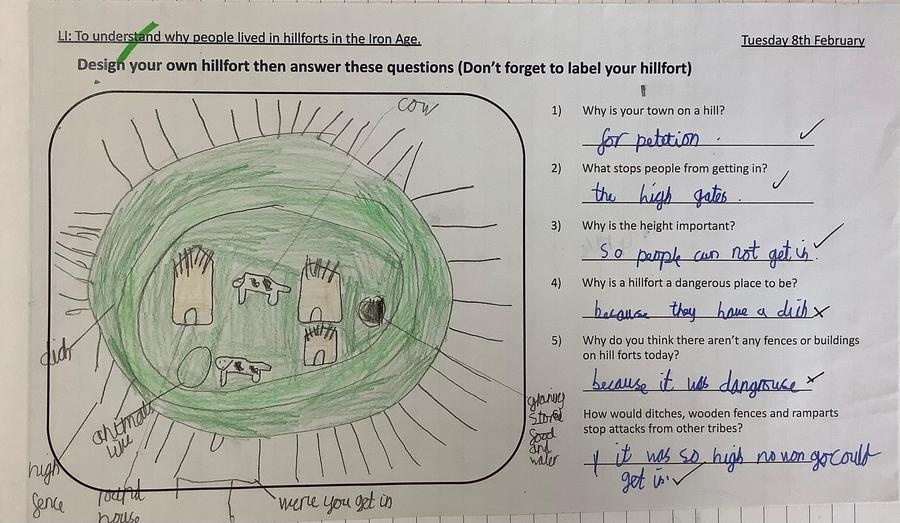 LI: To understand why people lived in hillforts in the Iron Age.
Tuesday 8th February
Design your own hillfort then answer these questions (Don't forget to label your hillfort)
cow
dich
animals
high
fence
round
house
were you get in
store
food
and
water
1) Why is your town on a hill?
for petetion.
2) What stops people from getting in?
the high gates.
3) Why is the height important?
so people can not get in.
4) Why is a hillfort a dangerous place to be?
because they have a dich
5) Why do you think there aren't any fences or buildings
on hill forts today?
because it was dangrouse
How would ditches, wooden fences and ramparts
stop attacks from other tribes?
it was so high no non could
get in.